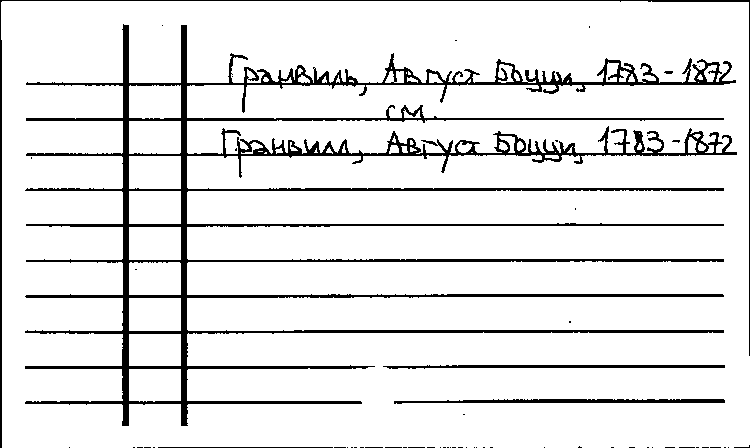 Грэнвиль, Август Боцци, 1783-1872
см.
Грэнвилл, Август Боцци, 1783-1872